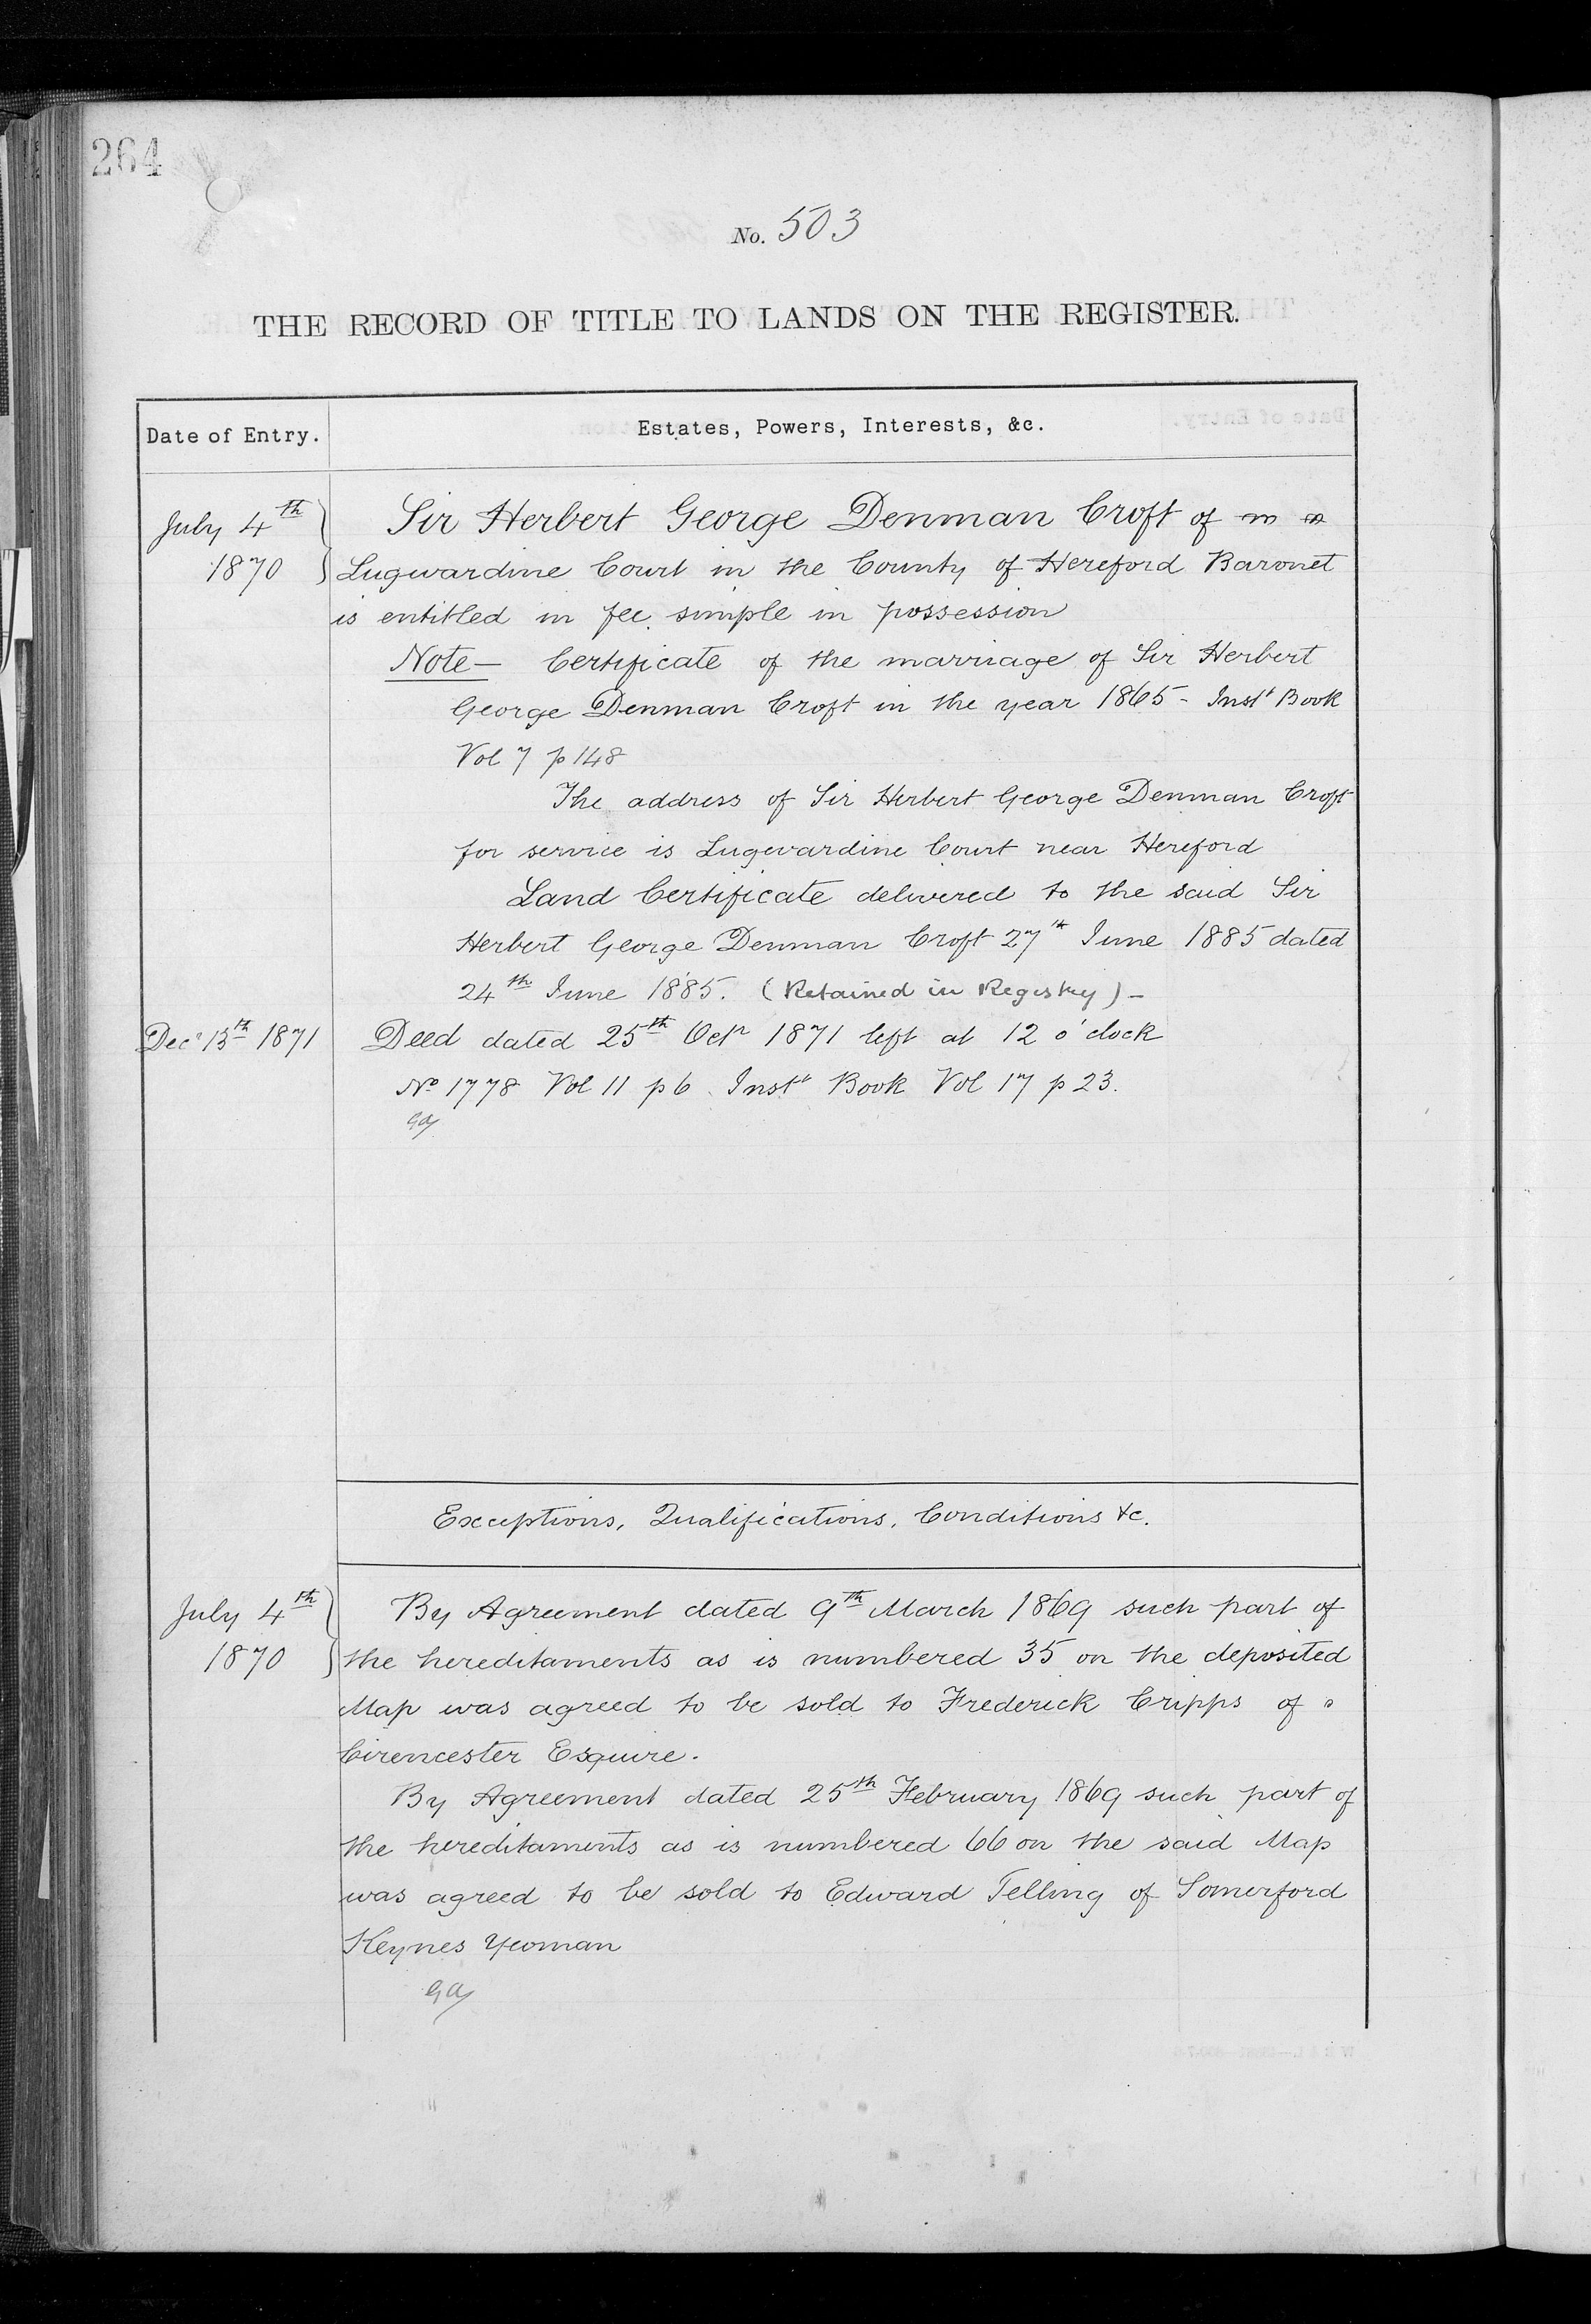 264
No. 503
THE RECORD OF TITLE TO LANDS ON THE REGISTER.
Date of Entry.
Estates, Powers, Interests, &c.
July 4th
1870
Sir Herbert George Denman Croft of
Lugwardine Court in the County of Hereford Baronet
is entitled in fee simple in possession
Note — Certificate of the marriage of Sir Herbert
George Denman Croft in the year 1865 - Instt Book
Vol 7 p 148
The address of Sir Herbert George Denman Croft
for service is Lugwardine Court near Hereford
Land Certificate delivered to the said Sir
Herbert George Denman Croft 27th June 1885 dated
24th June 1885. (Retained in Registry) -
Decr 13th 1871
Deed dated 25th Octr 1871 left at 12 o'clock
No 1778 Vol 11 p 6. Instt Book Vol 17 p 23.
Exceptions, Qualifications, Conditions &c.
July 4th
1870
By Agreement dated 9th March 1869 such part of
the hereditaments as is numbered 35 on the deposited
Map was agreed to be sold to Frederick Cripps of
Cirencester Esquire.
By Agreement dated 25th February 1869 such part of
the hereditaments as is numbered 66 on the said Map
was agreed to be sold to Edward Telling of Somerford
Keynes Yeoman